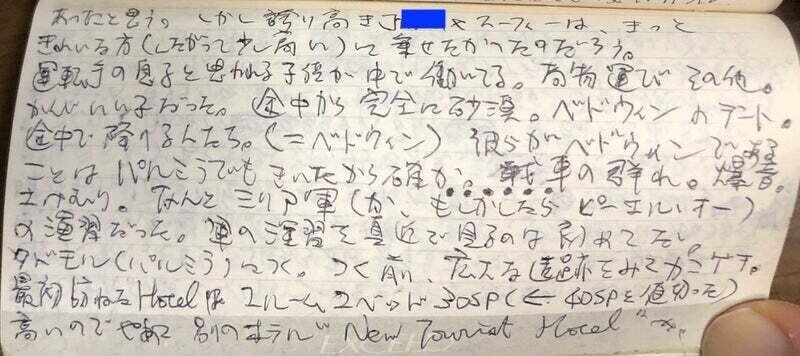 あったと思う。しかし誇り高き スーフィーは、きっと
きれいな方(したがって少し高い)に乗せたかったのだろう。
運転手の息子と思われる子供が中で働いてる。荷物運びその他。
かんじいい子だった。途中から完全に砂漠。ベドウィンのテント。
途中で降りる人たち。(=ベドウィン) 彼らがベドウィンである
ことはパルミラでもきいたから確か。戦車の群れ。爆音。
土けむり。なんとシリア軍(か、もしかしたらピーエルオー)
の演習だった。軍の演習を真近で見るのは初めてだ。
タドモル(パルミラ)につく。つく前、広大な遺跡をみて
最初訪ねるHotelは1ルーム2ベッド30SP(←40SPを値切った)
高いのでやめて別のホテル"New Tourist Hotel"へ。